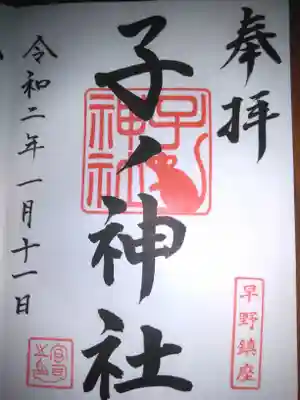 奉拝
早野鎮座
子ノ神社
子ノ神社
令和二年一月十一日